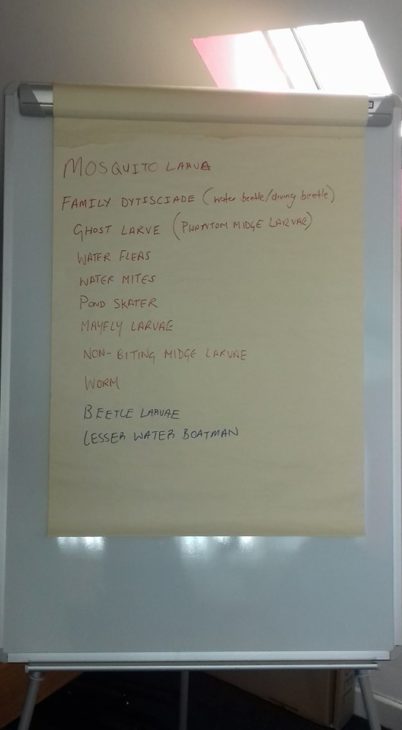 MOSQUITO LARVA
FAMILY DYTISCIADE (water beetle/diving beetle)
GHOST LARVE (PHANTOM MIDGE LARVAE)
WATER FLEAS
WATER MITES
POND SKATER
MAYFLY LARVAE
NON-BITING MIDGE LARVAE
WORM
BEETLE LARVAE
LESSER WATER BOATMAN